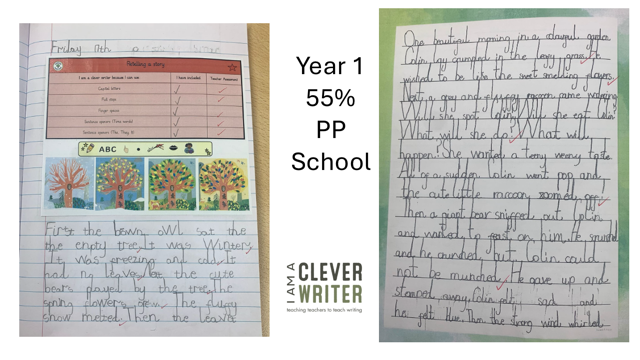 Friday 17th
Retelling a story
I am a clever writer because I can use: I have included Teacher Assessment
Capital letters
Full stops
Finger spaces
Sentence openers (Time words)
Sentence openers (The, They, It)
ABC
First the brown owl sat the
the empty tree. It was Winter.
It was freezing and cold. It
had no leaves. the cute
bears played by the tree. The
spring flowers grew. The flufy
snow melted. Then the leaves
Year 1
55%
PP
School
I AM A
CLEVER
WRITER
teaching teachers to teach writing
One beautiful morning in a colourful garden
Colin lay cramped in the leggy grass. He
wished to be like the sweet smelling flowers.
Next a grey and fluffy racoon came wandering
Will she spot Colin? Will she eat Colin?
What will she do? What will
happen? She wanted a teeny weeny taste.
All of a sudden Colin went pop and
the cute little racoon zoomed off.
Then a giant bear sniffed out Colin
and wanted to feast on him. He snorted
and he crunched but Colin could
not be munched. He gave up and
stomped away. Colin felt sad and
he felt blue. Then the strong wind whirled